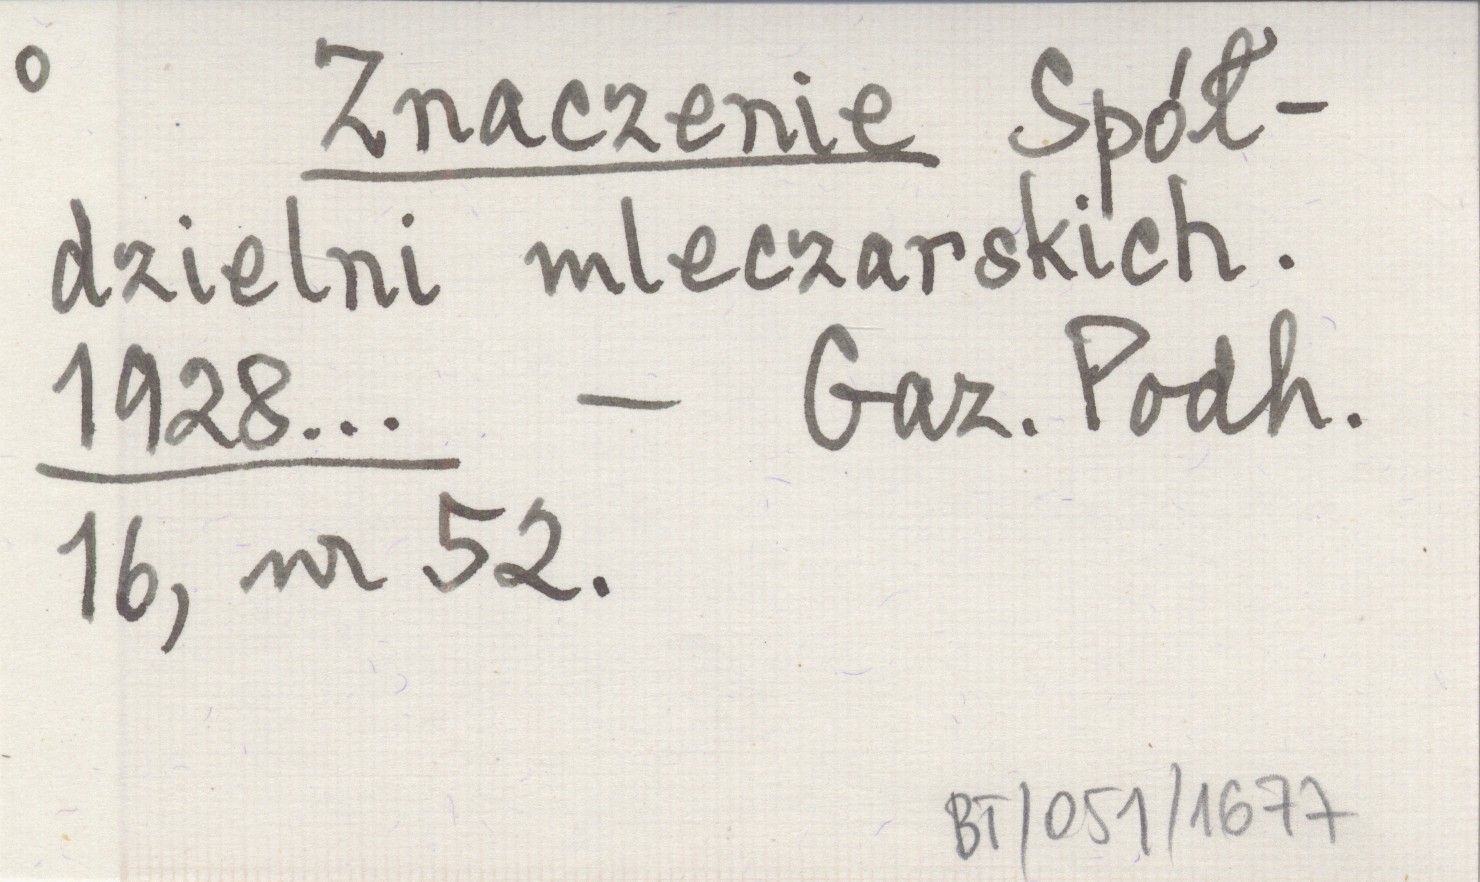 o Znaczenie Spół-
dzielni mleczarskich.
1928... — Gaz. Podh.
16, nr 52.
BT/051/1677